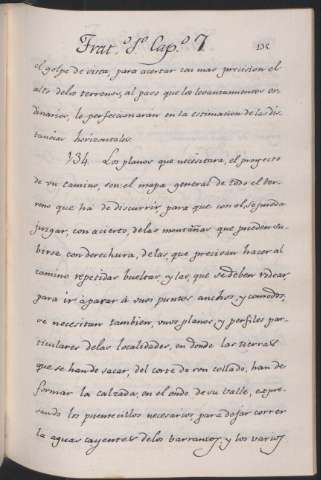 Trat.º 1º Cap.º 7
135
el golpe de vista, para acertar con mas precision el
alto delos terrenos, al paso que los levantamientos or
dinarios, le perfeccionaran en la estimacion de las dis
tancias horizontales.
134. Los planos que necesitara, el proyecto
de un camino, son: el mapa general de todo el ter
reno que ha de discurrir, para que con el se pueda
juzgar, con acierto, de las montañas que pueden su
birse con derechura, de las, que precisan hacer al
camino repetidas bueltas, y las, que se deben rodear
para ir à parar à unos puntos anchos y comodos,
se necesitan tambien, unos planos, y perfiles par
ticulares delas localidades, en donde las tierras
que se han de sacar, del corte de un collado, han de
formar la calzada, en el ondo de su valle, expre
sando los puentecillos necesarios para dejar correr
la aguas cayentes delos barrancos, y los varios